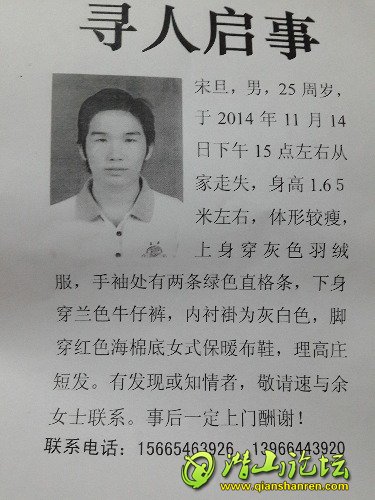 寻人启事
宋旦，男，25 周岁，
于 2014 年 11 月 14
日下午 15 点左右从
家走失，身高 1.65
米左右，体形较瘦，
上身穿灰色羽绒
服，手袖处有两条绿色直格条，下身
穿兰色牛仔裤，内衬褂为灰白色，脚
穿红色海棉底女式保暖布鞋，理高庄
短发。有发现或知情者，敬请速与余
女士联系。事后一定上门酬谢！
联系电话：15665463926 13966443920
潜山论坛
www.qianshanren.com